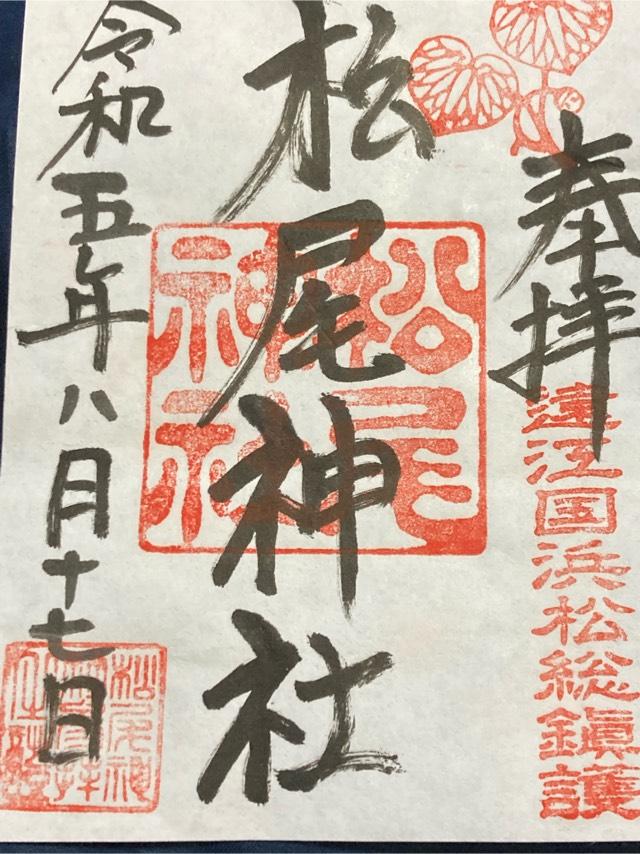 奉拝
遠江国浜松総鎮護
松尾神社
松尾神社
令和五年八月十七日